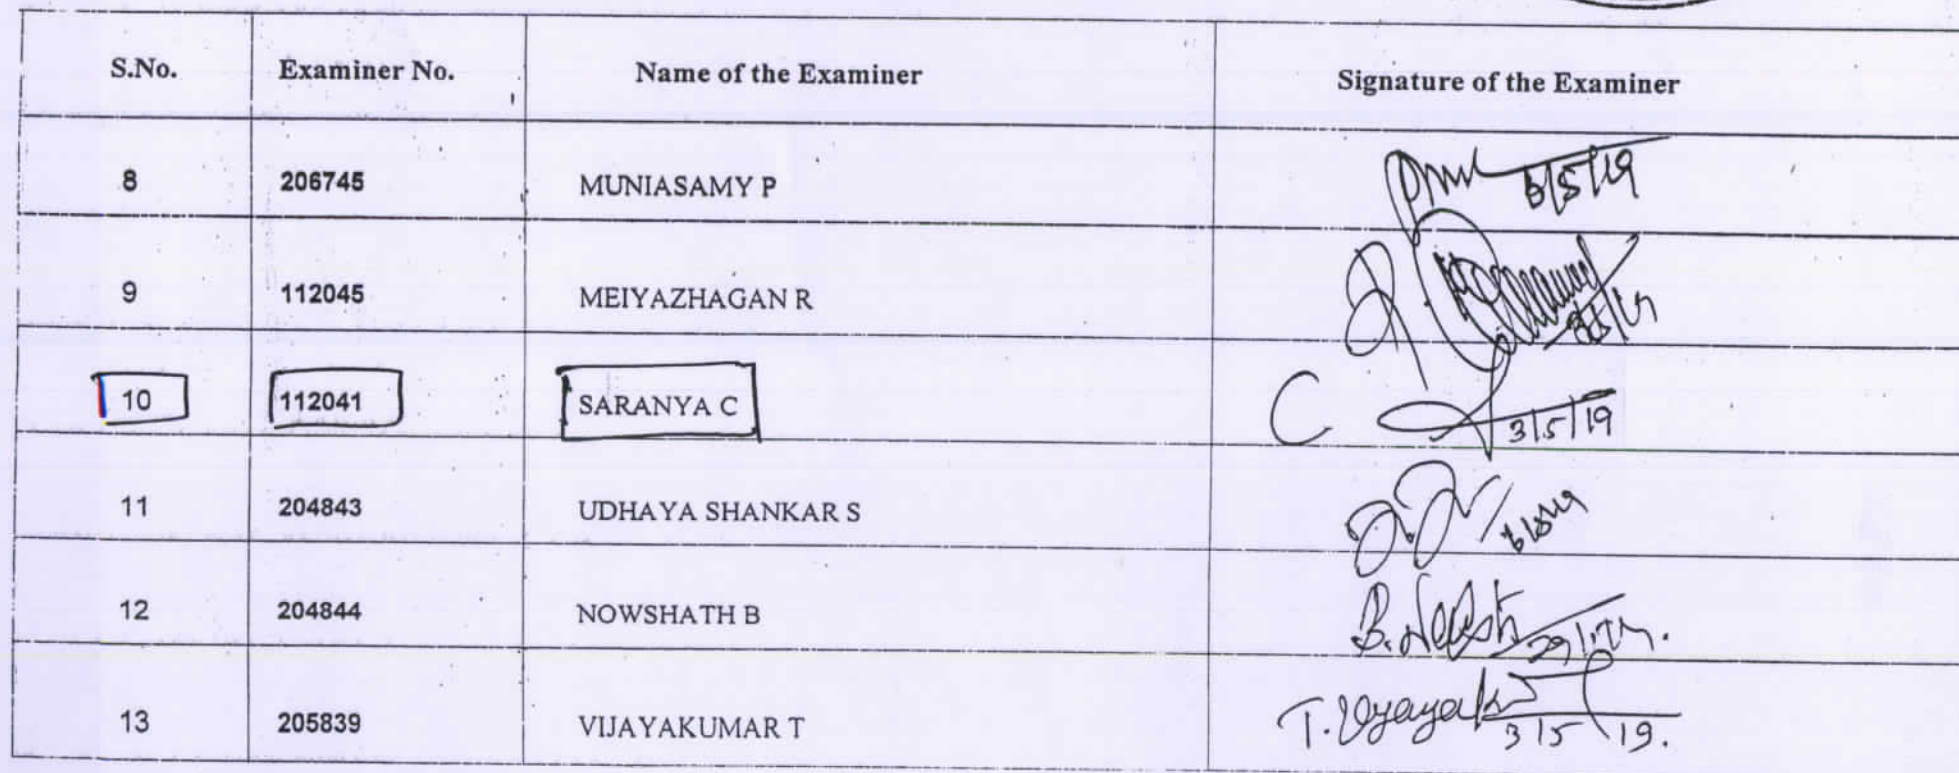 S.No. Examiner No. Name of the Examiner Signature of the Examiner
8 206745 MUNIASAMY P 3/5/19
9 112045 MEIYAZHAGAN R
10 112041 SARANYA C C 3/5/19
11 204843 UDHAYA SHANKAR S
12 204844 NOWSHATH B B.
13 205839 VIJAYAKUMAR T T. Vijayak 3/5/19.